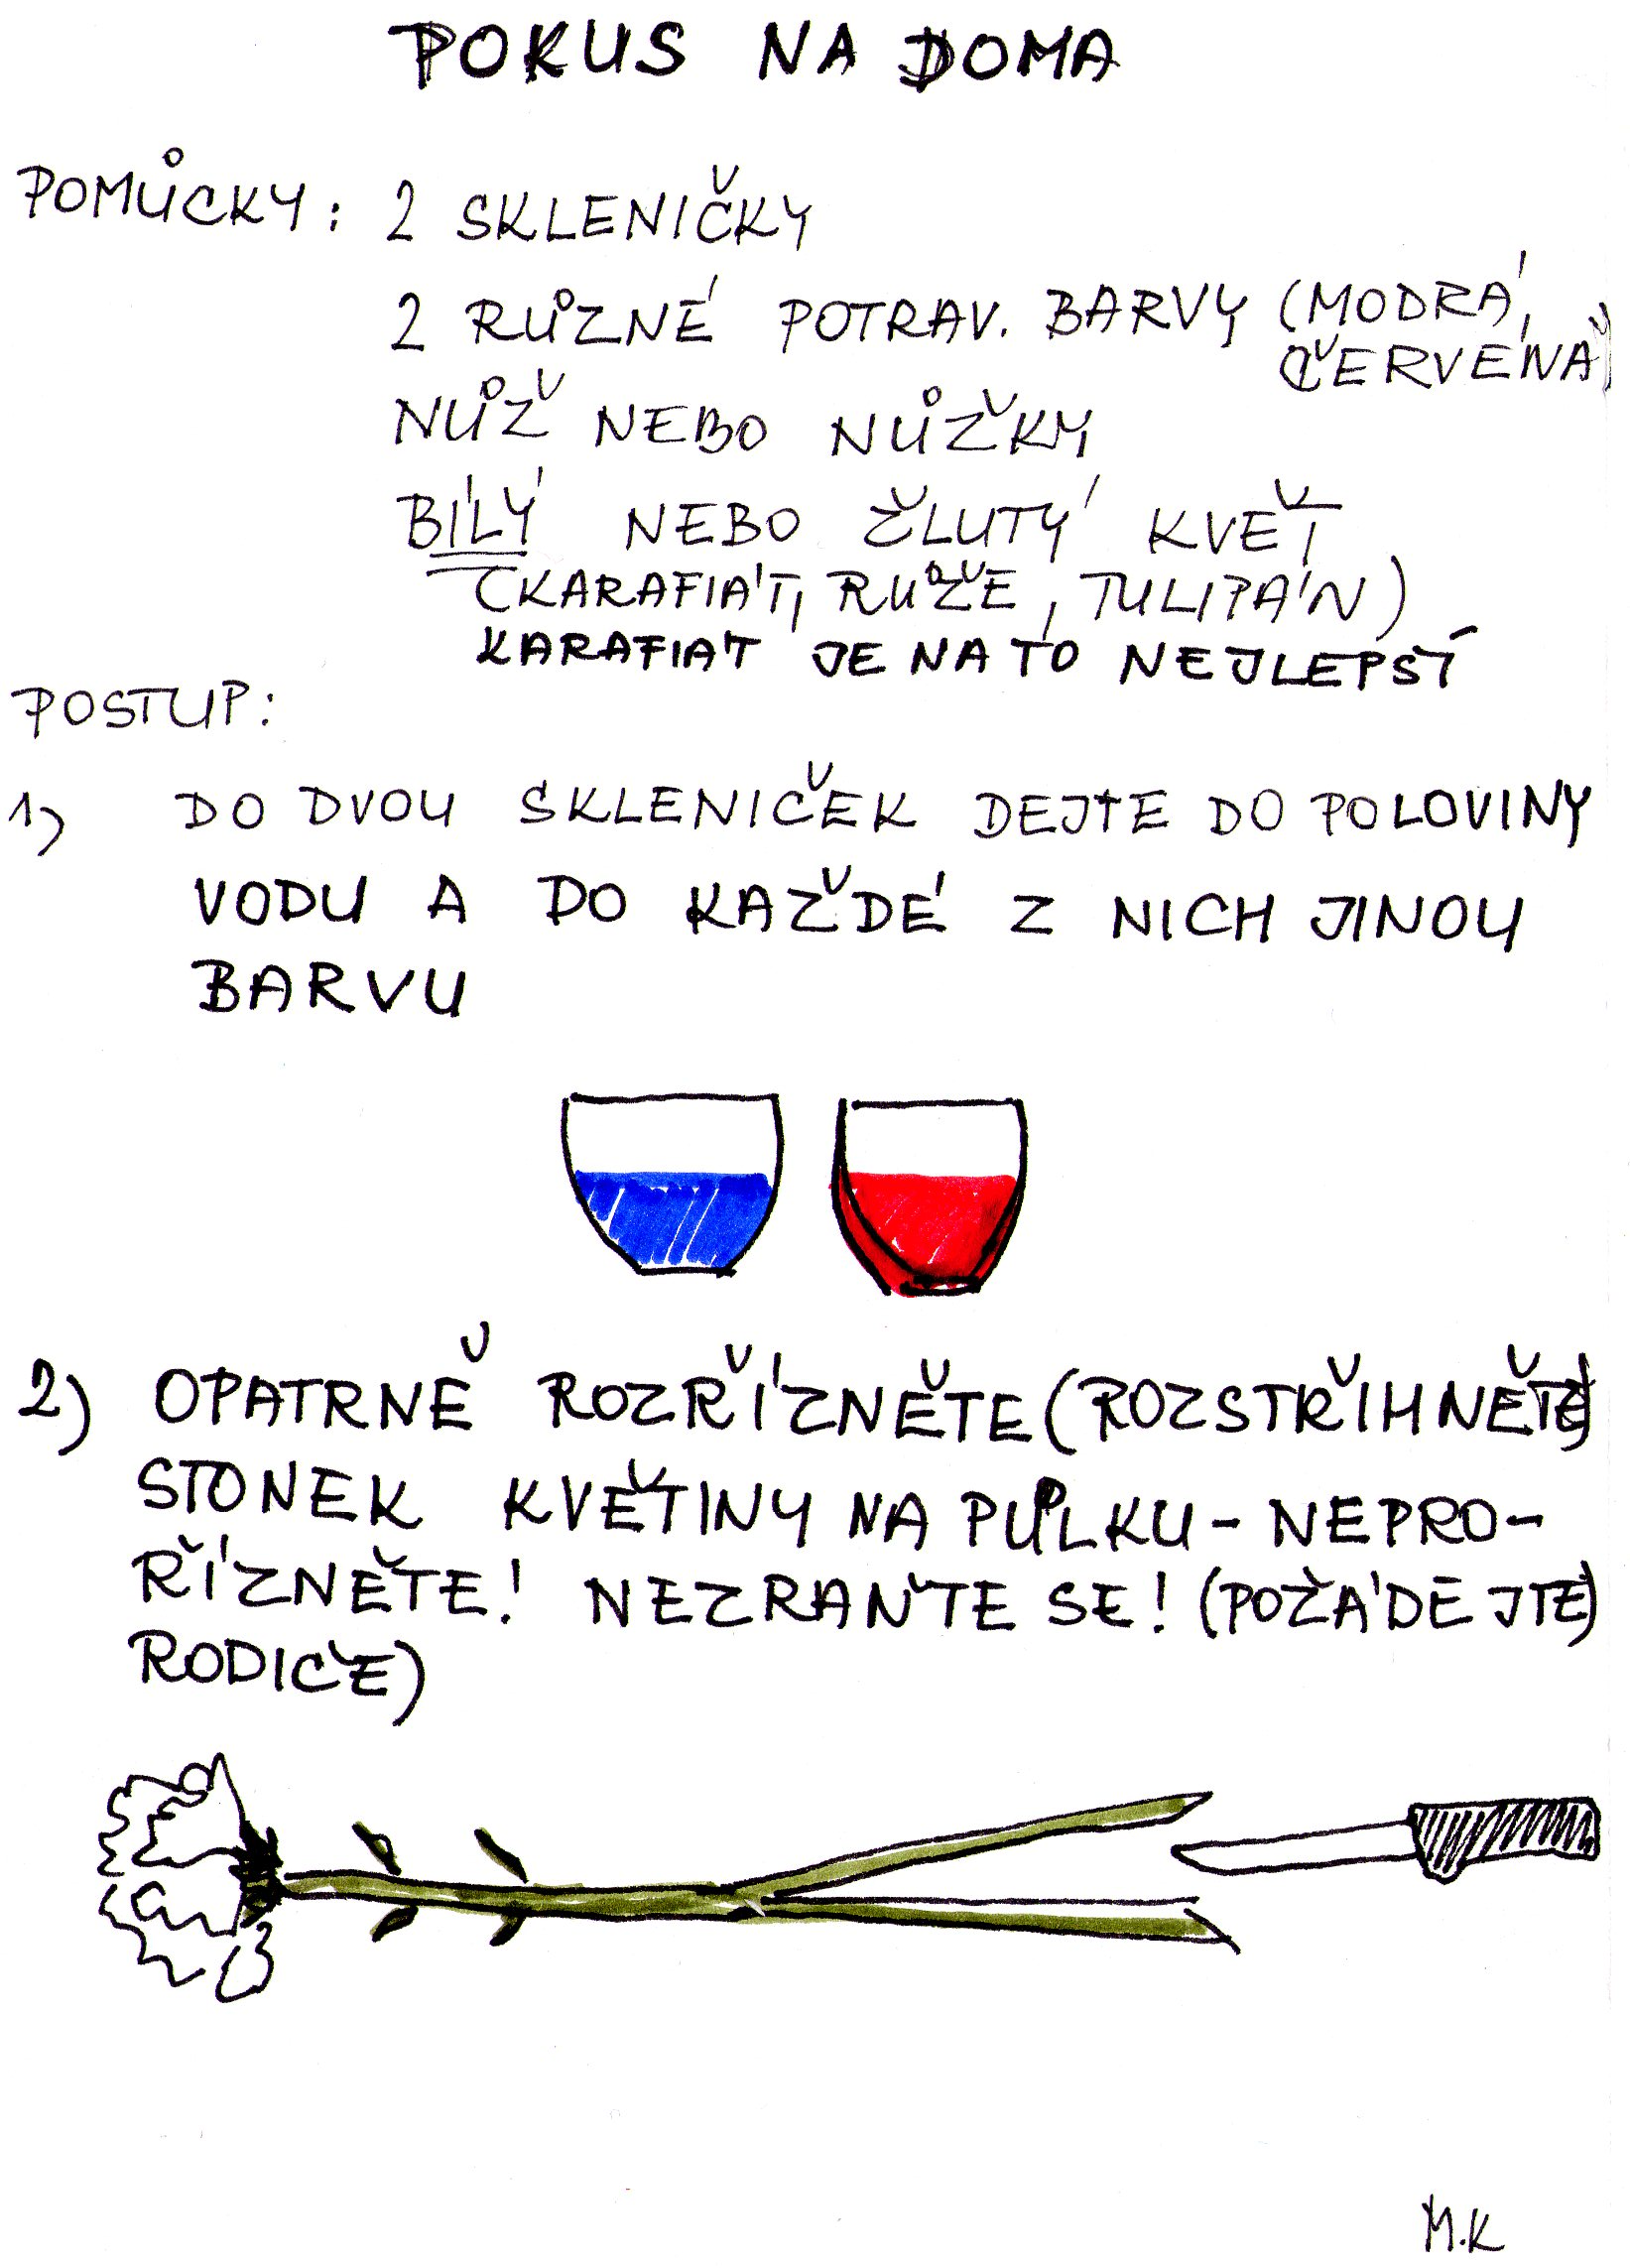 POKUS NA DOMA
POMŮCKY: 2 SKLENIČKY
2 RŮZNÉ POTRAV. BARVY (MODRÁ,
ČERVENÁ)
NŮŽ NEBO NŮŽKY
BÍLÝ NEBO ČLUTÝ KVĚT
(KARAFIÁT, RŮŽE, TULIPÁN)
KARAFIÁT JE NA TO NEJLEPŠÍ
POSTUP:
1) DO DVOU SKLENIČEK DEJTE DO POLOVINY
VODU A DO KAŽDÉ Z NICH JINOU
BARVU
2) OPATRNĚ ROZŘÍZNĚTE (ROZSTŘIHNĚTE)
STONEK KVĚTINY NA PŮLKU - NEPRO-
ŘÍZNĚTE! NEZRAŇTE SE! (POŽÁDEJTE)
RODIČE)
M.K